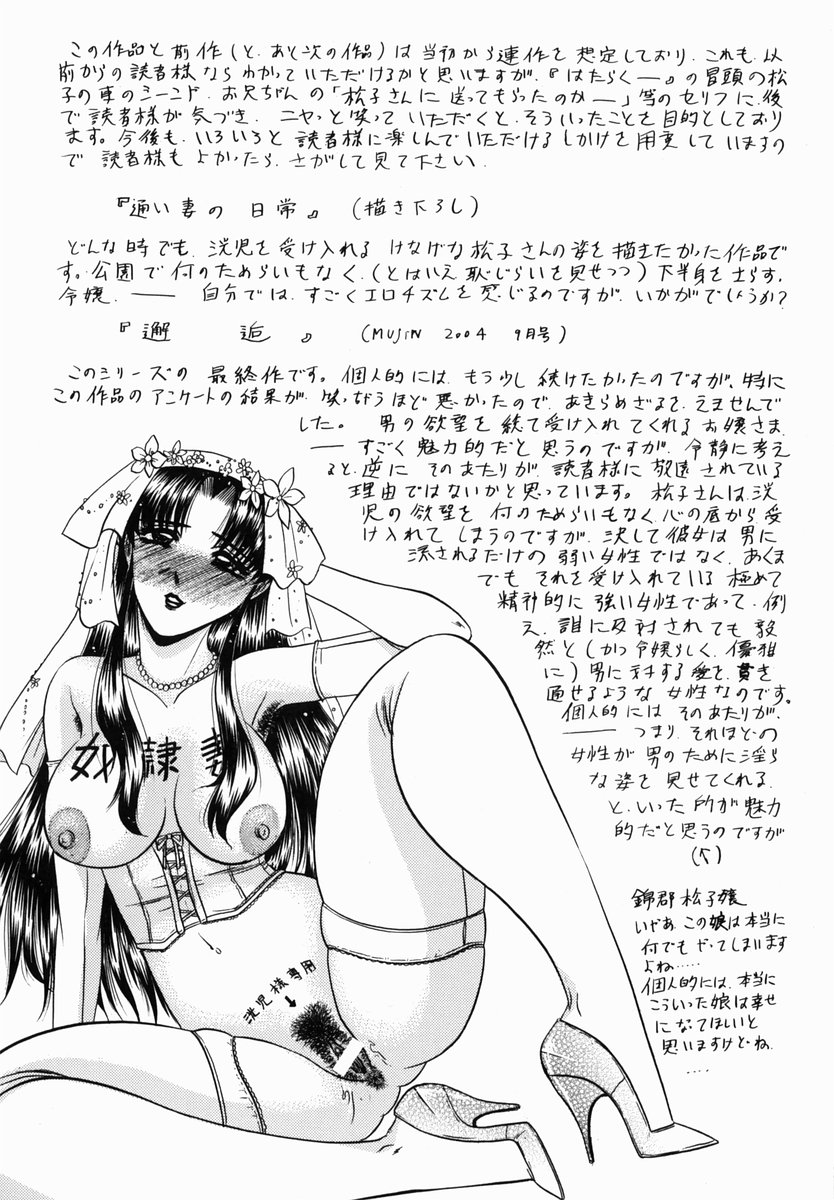 この作品と前作(と、あと次の作品)は当初から連作を想定しており、これも、以
前からの読者様ならわかっていただけるかと思いますが、『はたらく―』の冒頭の松
子の車のシーンや、お兄ちゃんの「松子さんに送ってもらったのか―」等のセリフに、後
で読者様が気づき、ニヤッと笑っていただくと、そういったことを目的としており
ます。今後も、いろいろと読者様に楽しんでいただけるしかけを用意していますの
で読者様もよかったら、さがして見て下さい。
『通い妻の日常』(描き下ろし)
どんな時でも、洸児を受け入れるけなげな松子さんの姿を描きたかった作品で
す。公園で何のためらいもなく、(とはいえ恥じらいを見せつつ)下半身を晒す。
令嬢、―― 自分では、すごくエロチズムを感じるのですが、いかがでしょうか?
『邂逅』(MUJIN 2004 9月号)
このシリーズの最終作です。個人的には、もう少し続けたかったのですが、特に
この作品のアンケートの結果が、笑っちゃうほど悪かったので、あきらめざるを、えませんで
した。男の欲望を統て受け入れてくれるお嬢さま、
―― すごく魅力的だと思うのですが、令静に考え
ると、逆にそのあたりが、読者様に敬遠されている
理由ではないかと思っています。松子さんは、洸
児の欲望を何のためらいもなく、心の底から受
け入れてしまうのですが、決して彼女は男に
流されるだけの弱い女性ではなく、あくま
でもそれを受け入れている極めて
精神的に強い女性であって、例
え、誰に反対されても毅
然と(かつ令嬢らしく、優雅
に)男に対する愛を、貫き
通せるような女性なのです。
個人的にはそのあたりが、
―― つまり、それほどの
女性が男のために淫ら
な姿を見せてくれる、
と、いった所が魅力
的だと思うのですが
奴隷妻
洸児様専用
↓
錦郡松子嬢
いやあ、この娘は本当に
何でもやってしまいます
よね……
個人的には、本当に
こういった娘は幸せ
になってほしいと
思いますけどね、
……